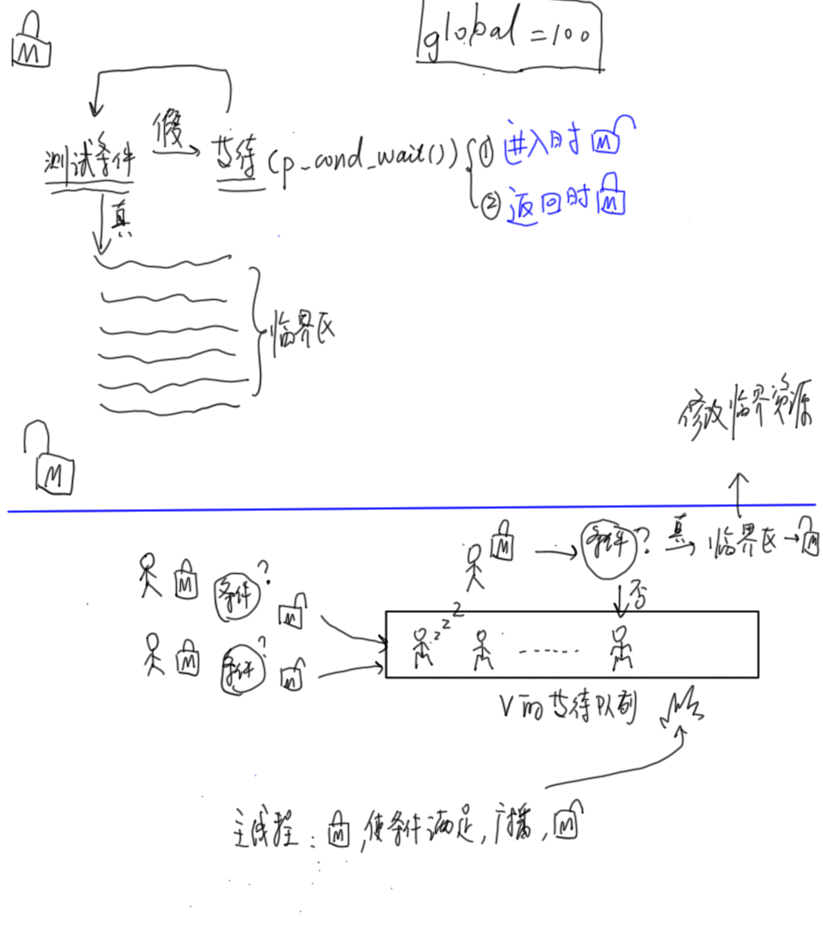 M
global = 100
假
测试条件 等待 (p_cond_wait()) ① 进入时 M
② 返回时 M
真
临界区
M
修改临界资源
M 条件? 真 临界区 → M
M 条件? M
否
z z z
M 条件? M
......
V的等待队列
主线程: M, 使条件满足, 广播, M